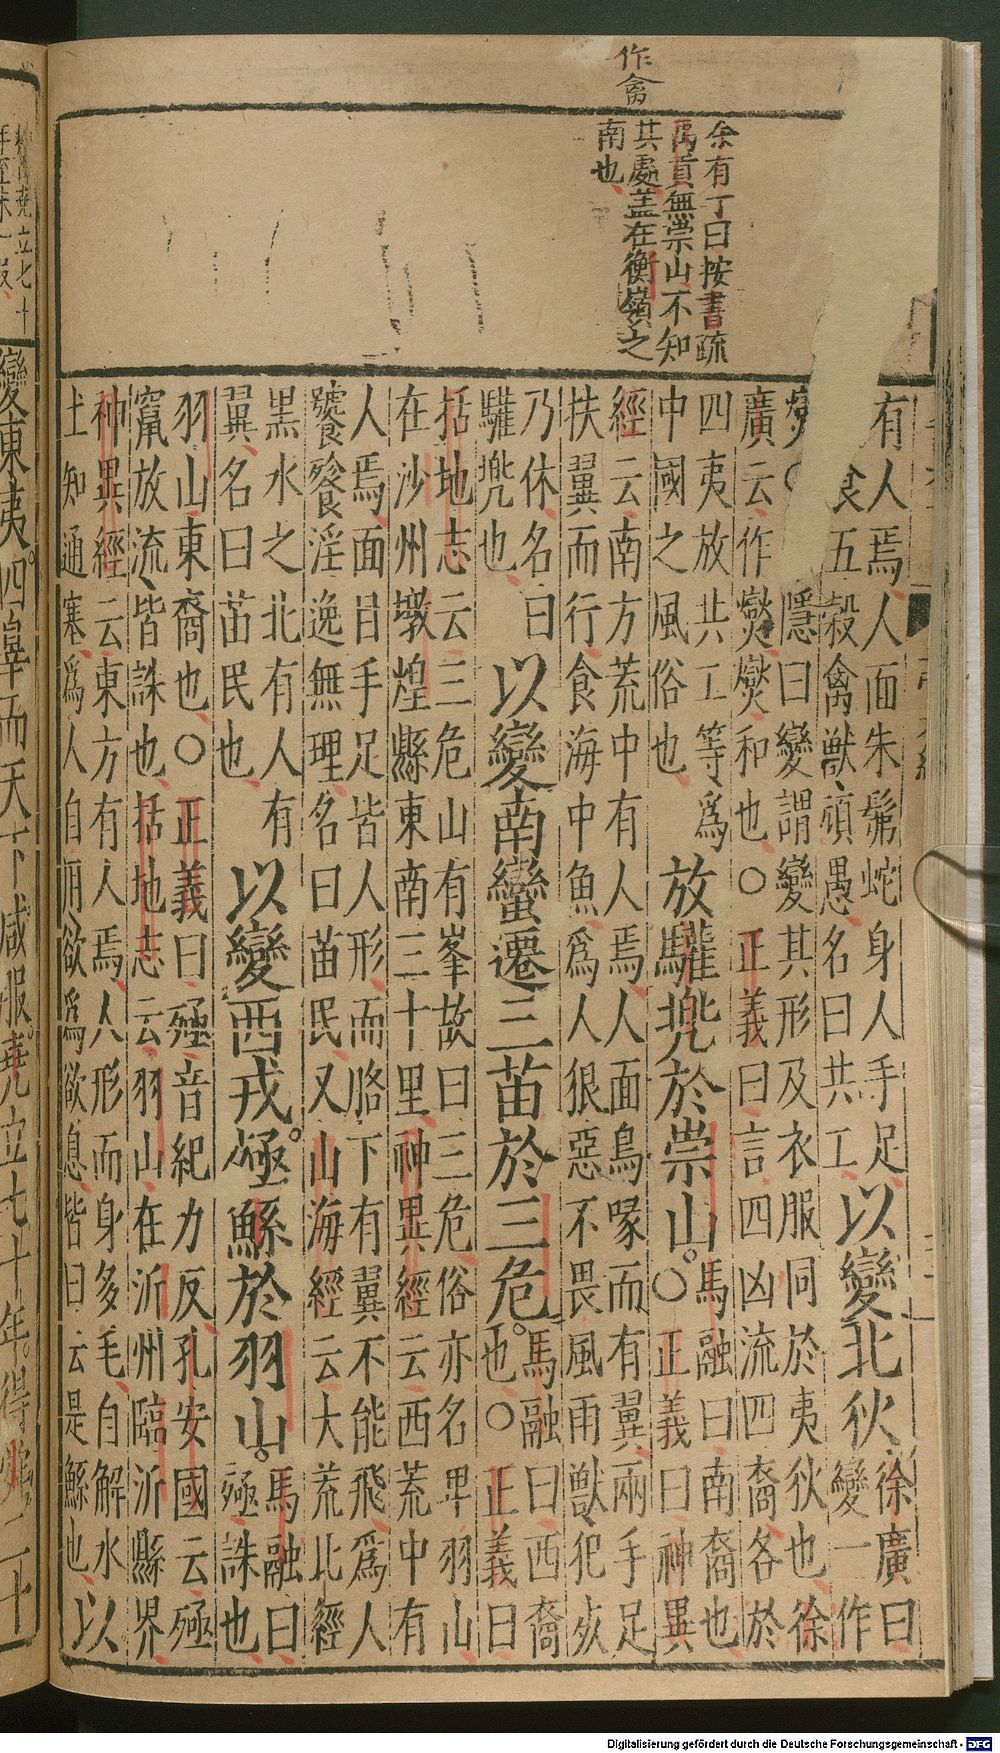 作禽
余有丁曰按書疏
禹貢無崇山不知
其處盖在衡嶺之
南也
有人焉人面朱髴蛇身人手足
食五穀禽獸頑愚名曰共工
以變北狄
徐廣曰
變一作
燮○ 隱曰變謂變其形及衣服同於夷狄也徐
廣云作燮燮和也○正義曰言四凶流四裔各於
四夷放共工等為
中國之風俗也
放驩兜於崇山。
馬融曰南裔也
○正義曰神異
經云南方荒中有人焉人面鳥喙而有翼兩手足
扶翼而行食海中魚為人狠惡不畏風雨獸犯死
乃休名曰
驩兜也
以變南蠻遷三苗於三危。
馬融曰西裔
也○正義曰
括地志云三危山有峯故曰三危俗亦名卑羽山
在沙州墩煌縣東南三十里神異經云西荒中有
人焉面目手足皆人形而胳下有翼不能飛為人
饕餮淫逸無理名曰苗民又山海經云大荒北經
黑水之北有人有
翼名曰苗民也
以變西戎。殛鯀於羽山。
馬融曰
殛誅也
羽山東裔也○正義曰殛音紀力反孔安國云殛
竄放流皆誅也括地志云羽山在沂州臨沂縣界
神異經云東方有人焉人形而身多毛自解水
土知通塞為人自用欲為欲息皆曰云是鯀也
以
變東夷。四辠而天下咸服。堯立七十年。得舜。二十
Digitalisierung gefördert durch die Deutsche Forschungsgemeinschaft - DFG